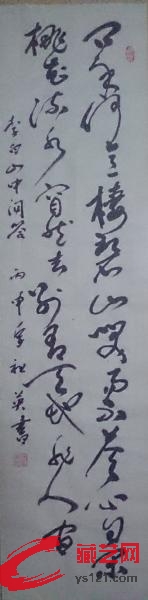 问余何意栖碧山笑而不答心自闲
桃花流水窅然去别有天地非人间
李白山中问答 丙申年 秋英书
藏艺网
ys121.com